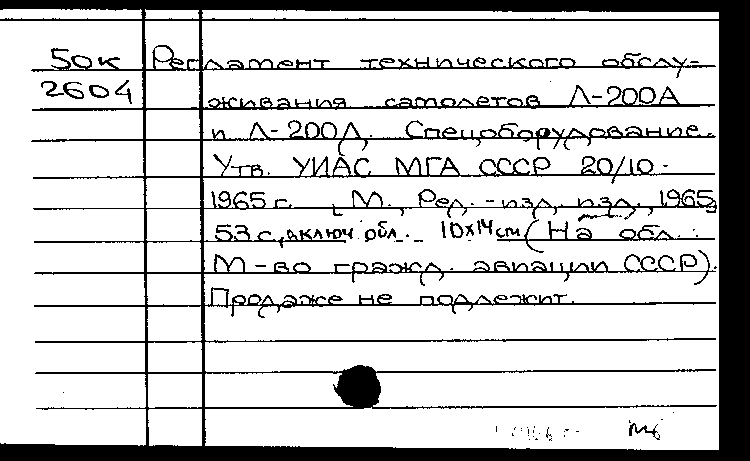 50к Регламент технического обслу-
2604 живания самолетов Л-200А
и Л-200Д. Спецоборудование.
Утв. УИАС МГА СССР 20/10-
1965 г. [М., Ред.-изд. изд., 1965]
53 с, включ обл. 10х14 см (На обл.:
М-во гражд. авиации СССР).
Продаже не подлежит.